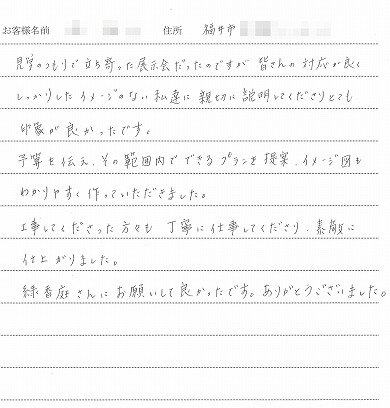 お客様名前 住所 福井市
見学のつもりで立ち寄った展示会だったのですが 皆さんの対応が良く
しっかりしたイメージのない私達に親切に説明してくださりとても
印象が良かったです。
予算を伝え、その範囲内でできるプランを提案、イメージ図も
わかりやすく作っていただきました。
工事してくださった方々も 丁寧に仕事してくださり、素敵に
仕上がりました。
緑香庭さんにお願いして良かったです。ありがとうございました。